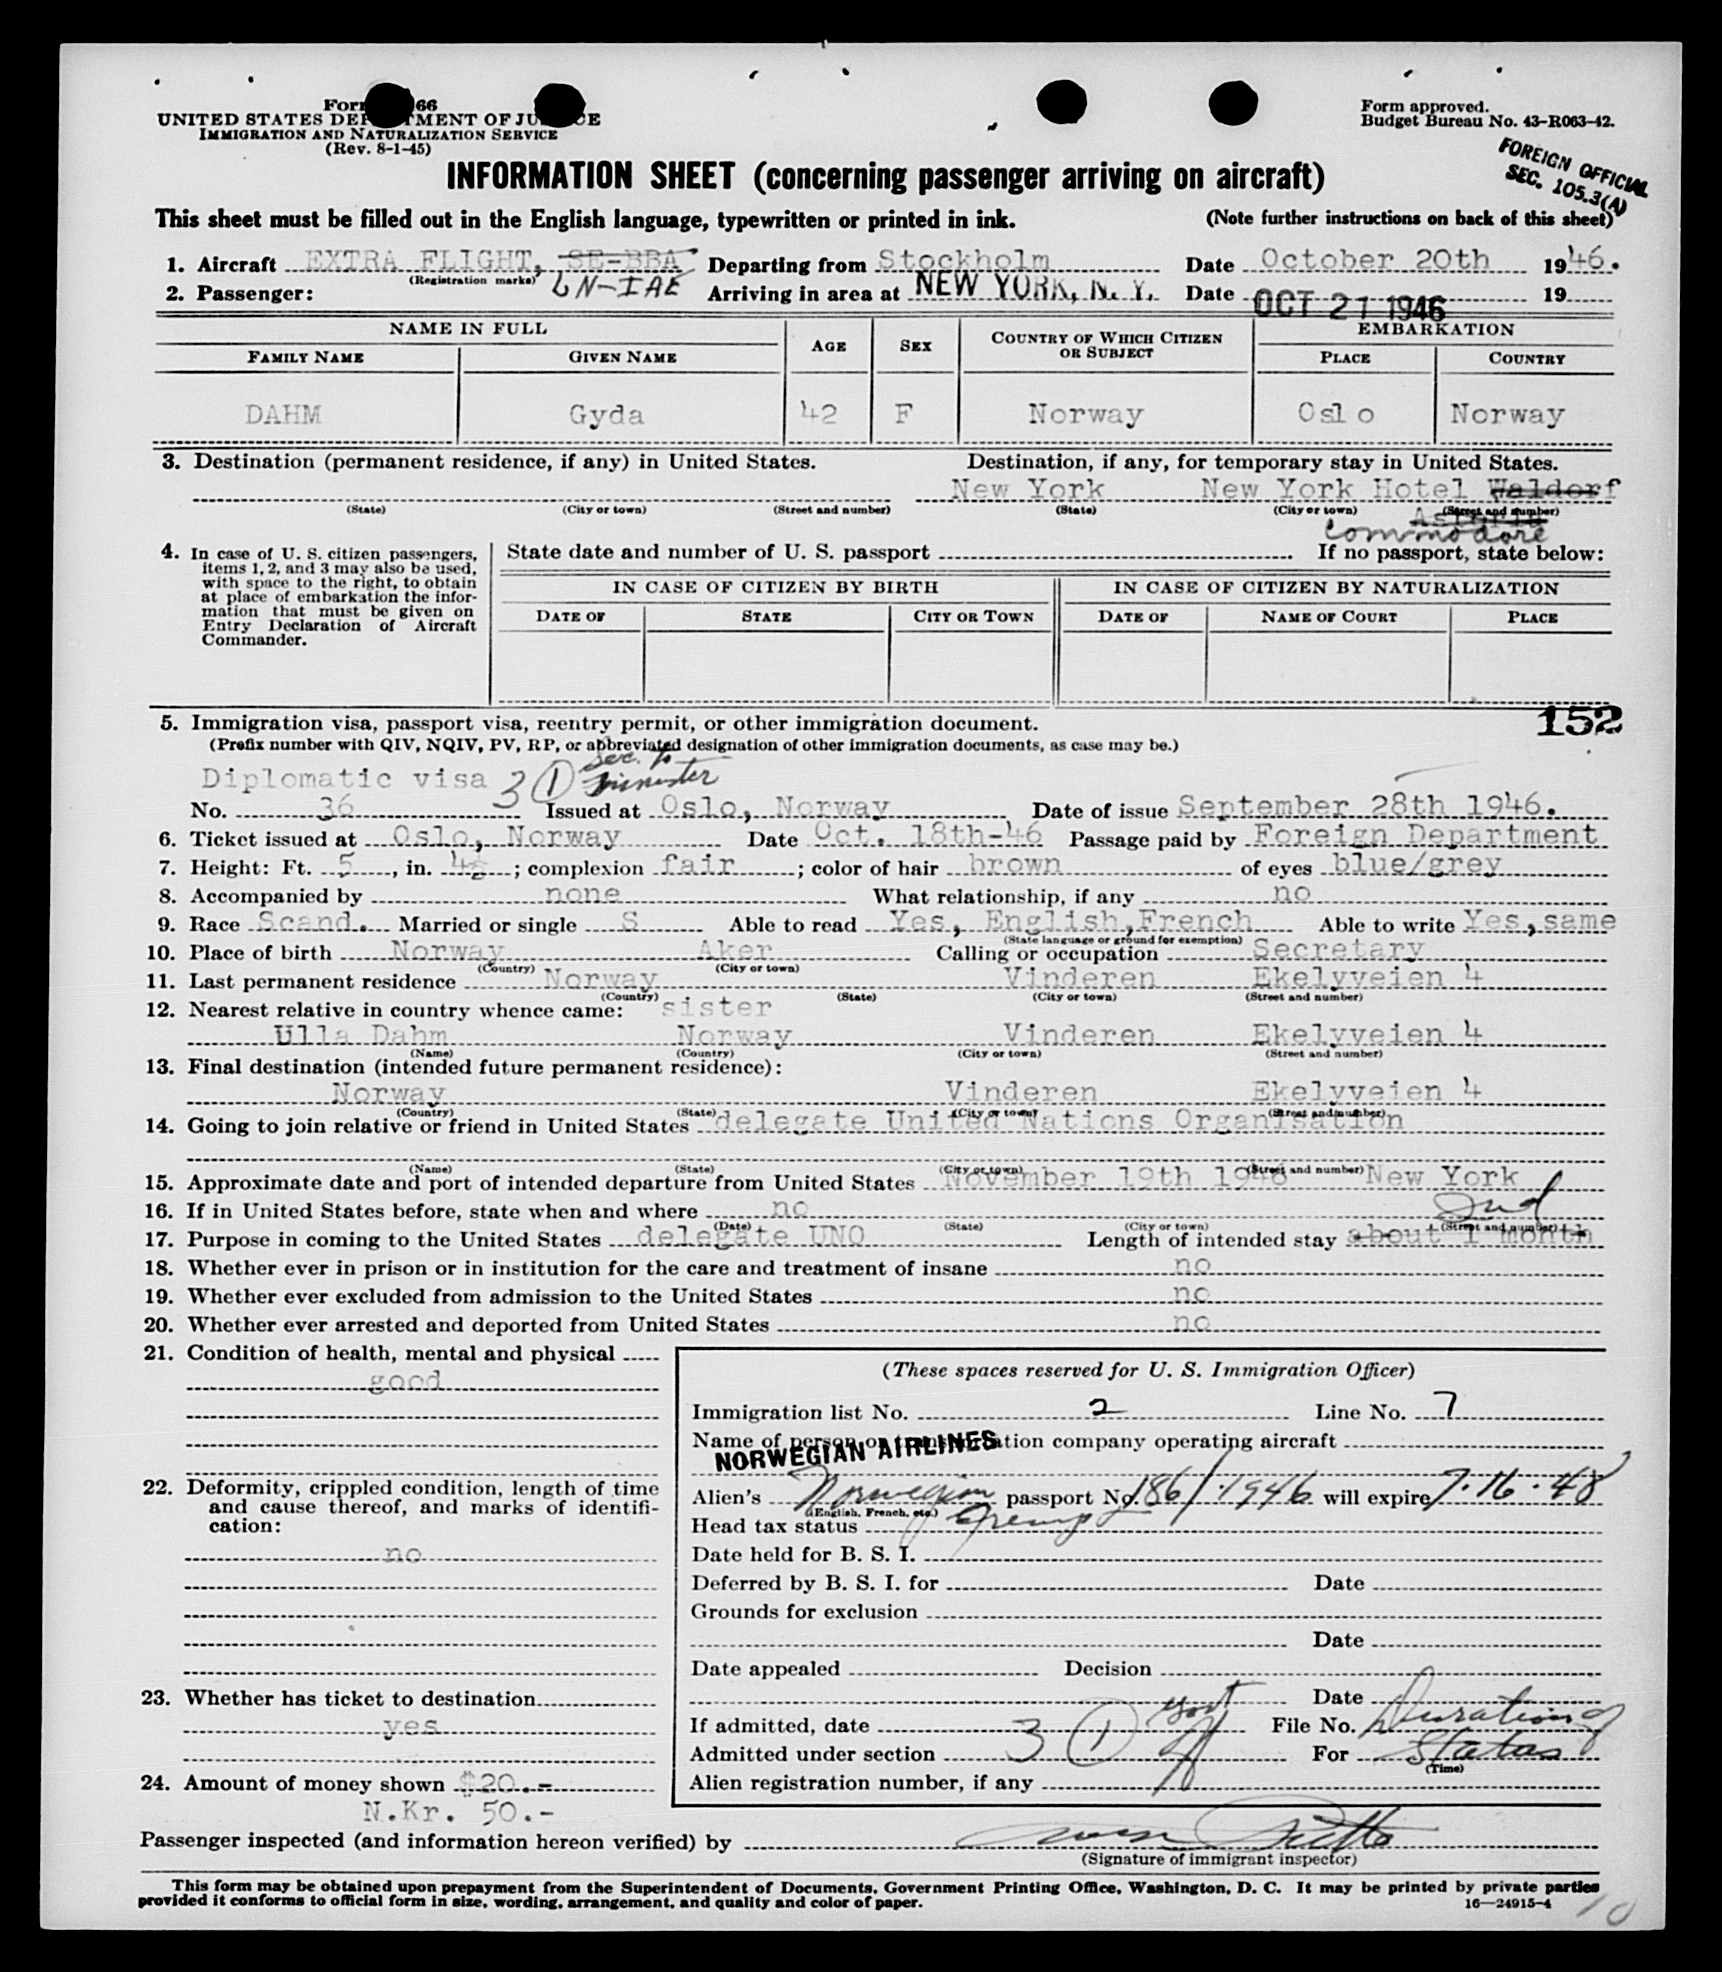 Form 66
UNITED STATES DEPARTMENT OF JUSTICE
IMMIGRATION AND NATURALIZATION SERVICE
(Rev. 8-1-45)
Form approved.
Budget Bureau No. 43-R063-42.
FOREIGN OFFICIAL
SEC. 105.3(A)
INFORMATION SHEET (concerning passenger arriving on aircraft)
This sheet must be filled out in the English language, typewritten or printed in ink. (Note further instructions on back of this sheet)
1. Aircraft EXTRA FLIGHT, SE-BBA Departing from Stockholm Date October 20th 1946.
(Registration marks) LN-IAE
2. Passenger: Arriving in area at NEW YORK, N. Y. Date OCT 21 1946 19
NAME IN FULL AGE SEX COUNTRY OF WHICH CITIZEN OR SUBJECT EMBARKATION
FAMILY NAME GIVEN NAME PLACE COUNTRY
DAHM Gyda 42 F Norway Oslo Norway
3. Destination (permanent residence, if any) in United States. Destination, if any, for temporary stay in United States.
New York New York Hotel Waldorf
(State) (City or town) (Street and number) (State) (City or town) (Street and number)
Astoria
Commodore
4. In case of U. S. citizen passengers, items 1, 2, and 3 may also be used, with space to the right, to obtain at place of embarkation the information that must be given on Entry Declaration of Aircraft Commander.
State date and number of U. S. passport If no passport, state below:
IN CASE OF CITIZEN BY BIRTH IN CASE OF CITIZEN BY NATURALIZATION
DATE OF STATE CITY OR TOWN DATE OF NAME OF COURT PLACE
152
5. Immigration visa, passport visa, reentry permit, or other immigration document.
(Prefix number with QIV, NQIV, PV, RP, or abbreviated designation of other immigration documents, as case may be.)
Diplomatic visa 3 (1) Sec. to Minister
No. 36 Issued at Oslo, Norway Date of issue September 28th 1946.
6. Ticket issued at Oslo, Norway Date Oct. 18th-46 Passage paid by Foreign Department
7. Height: Ft. 5, in. 4½; complexion fair; color of hair brown of eyes blue/grey
8. Accompanied by none What relationship, if any no
9. Race Scand. Married or single S Able to read Yes, English,French Able to write Yes,same
(State language or ground for exemption)
10. Place of birth Norway Aker Calling or occupation Secretary
(Country) (City or town)
11. Last permanent residence Norway Vinderen Ekelyveien 4
(Country) (State) (City or town) (Street and number)
12. Nearest relative in country whence came: sister
Ulla Dahm Norway Vinderen Ekelyveien 4
(Name) (Country) (City or town) (Street and number)
13. Final destination (intended future permanent residence):
Norway Vinderen Ekelyveien 4
(Country) (State) (City or town) (Street and number)
14. Going to join relative or friend in United States delegate United Nations Organisation
(Name) (State) (City or town) (Street and number)
15. Approximate date and port of intended departure from United States November 19th 1946 New York
16. If in United States before, state when and where no
(Date) (State) (City or town) (Street and number)
17. Purpose in coming to the United States delegate UNO Length of intended stay about 1 month
18. Whether ever in prison or in institution for the care and treatment of insane no
19. Whether ever excluded from admission to the United States no
20. Whether ever arrested and deported from United States no
21. Condition of health, mental and physical
good
22. Deformity, crippled condition, length of time and cause thereof, and marks of identification:
no
23. Whether has ticket to destination
yes
24. Amount of money shown $20.-
N.Kr. 50.-
(These spaces reserved for U. S. Immigration Officer)
Immigration list No. 2 Line No. 7
Name of person or transportation company operating aircraft
NORWEGIAN AIRLINES
Alien's Norwegian passport No. 186/1946 will expire 7-16-48
(English, French, etc.)
Head tax status Exempt
Date held for B. S. I.
Deferred by B. S. I. for Date
Grounds for exclusion
Date
Date appealed Decision
Date
If admitted, date Govt File No. Duration of
Admitted under section 3 (1) For Status
(Time)
Alien registration number, if any
Passenger inspected (and information hereon verified) by
(Signature of immigrant inspector)
This form may be obtained upon prepayment from the Superintendent of Documents, Government Printing Office, Washington, D. C. It may be printed by private parties
provided it conforms to official form in size, wording, arrangement, and quality and color of paper. 16—24915-4
10